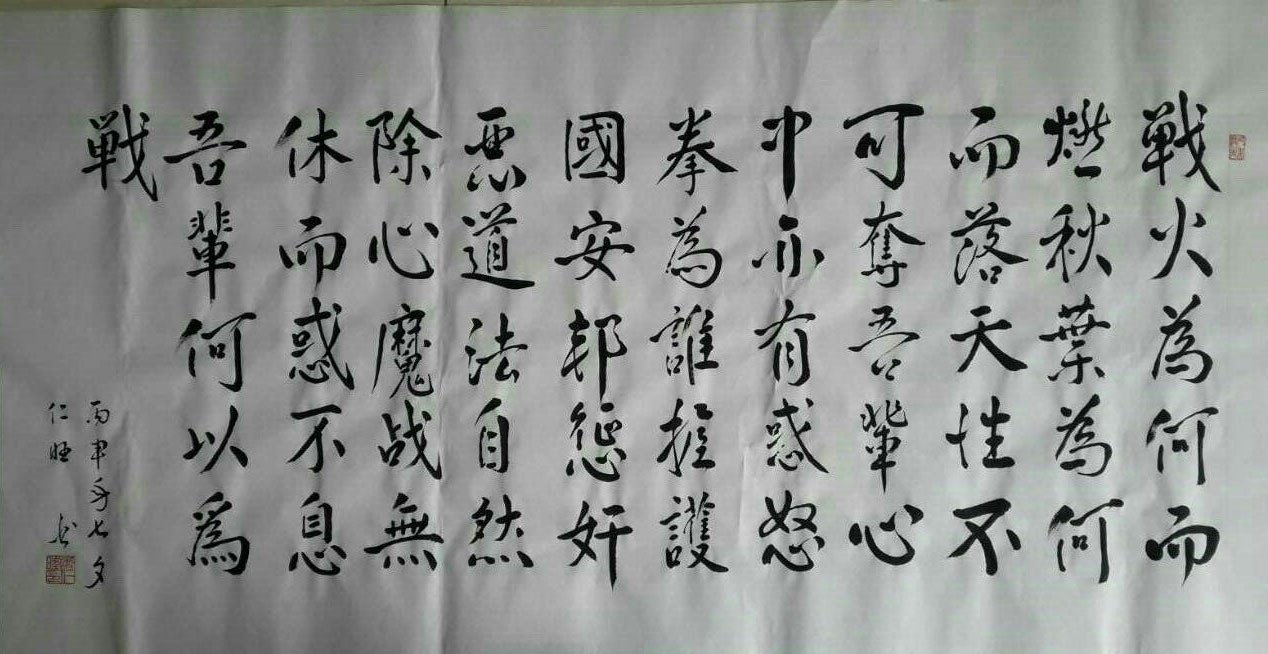 戦火為何而
燃秋葉為何
而落天性不
可奪吾輩心
中亦有惑怒
拳為誰握護
國安邦懲奸
惡道法自然
除心魔战無
休而惑不息
吾輩何以為
戦
丙申年七夕
仁